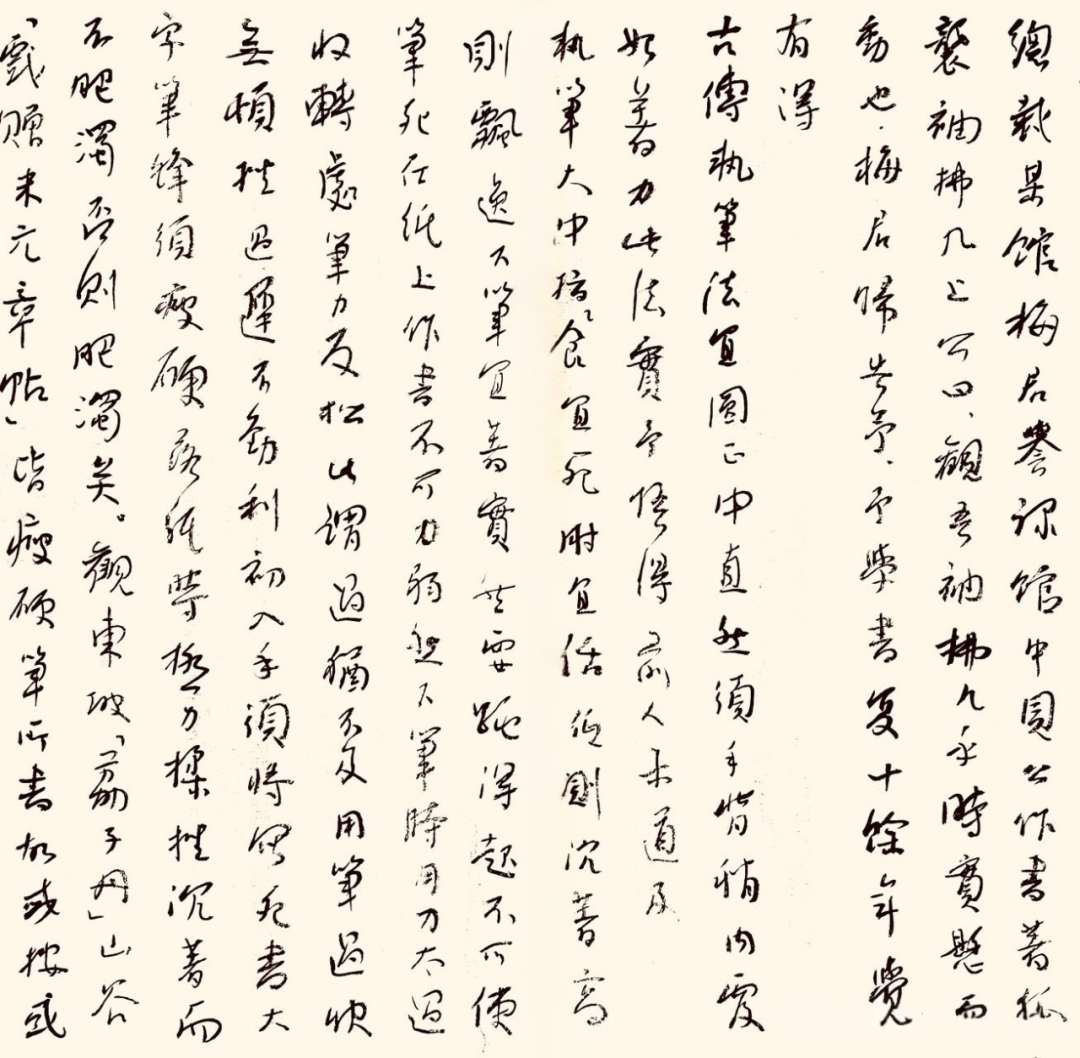 總裁某館梅居謄録館中圓公作書著狐
裘袖拂几上公曰、觀吾袖拂几乎時實懸而
動也、梅居歸告予、予學書复十餘年覺
有得
古傳執筆法宜圓正中直然須手背稍内覆
如著力此法實予悟得前人未道及
執筆大中指食宜死肘宜活低則沉著高
則飄逸下筆宜著實然要跳得起不可使
筆死在紙上作書不可力弱然下筆時用力太過
收轉處筆力反松此謂過猶不及用筆過快
無頓挫過遲不勁利初入手須將留死書大
字筆鋒須瘦硬落紙時極力揉挫沉著而
不肥濁否則肥濁矣。觀東坡「荔子丹」山谷
「戲贈米元章帖」皆瘦硬筆所書故或按或